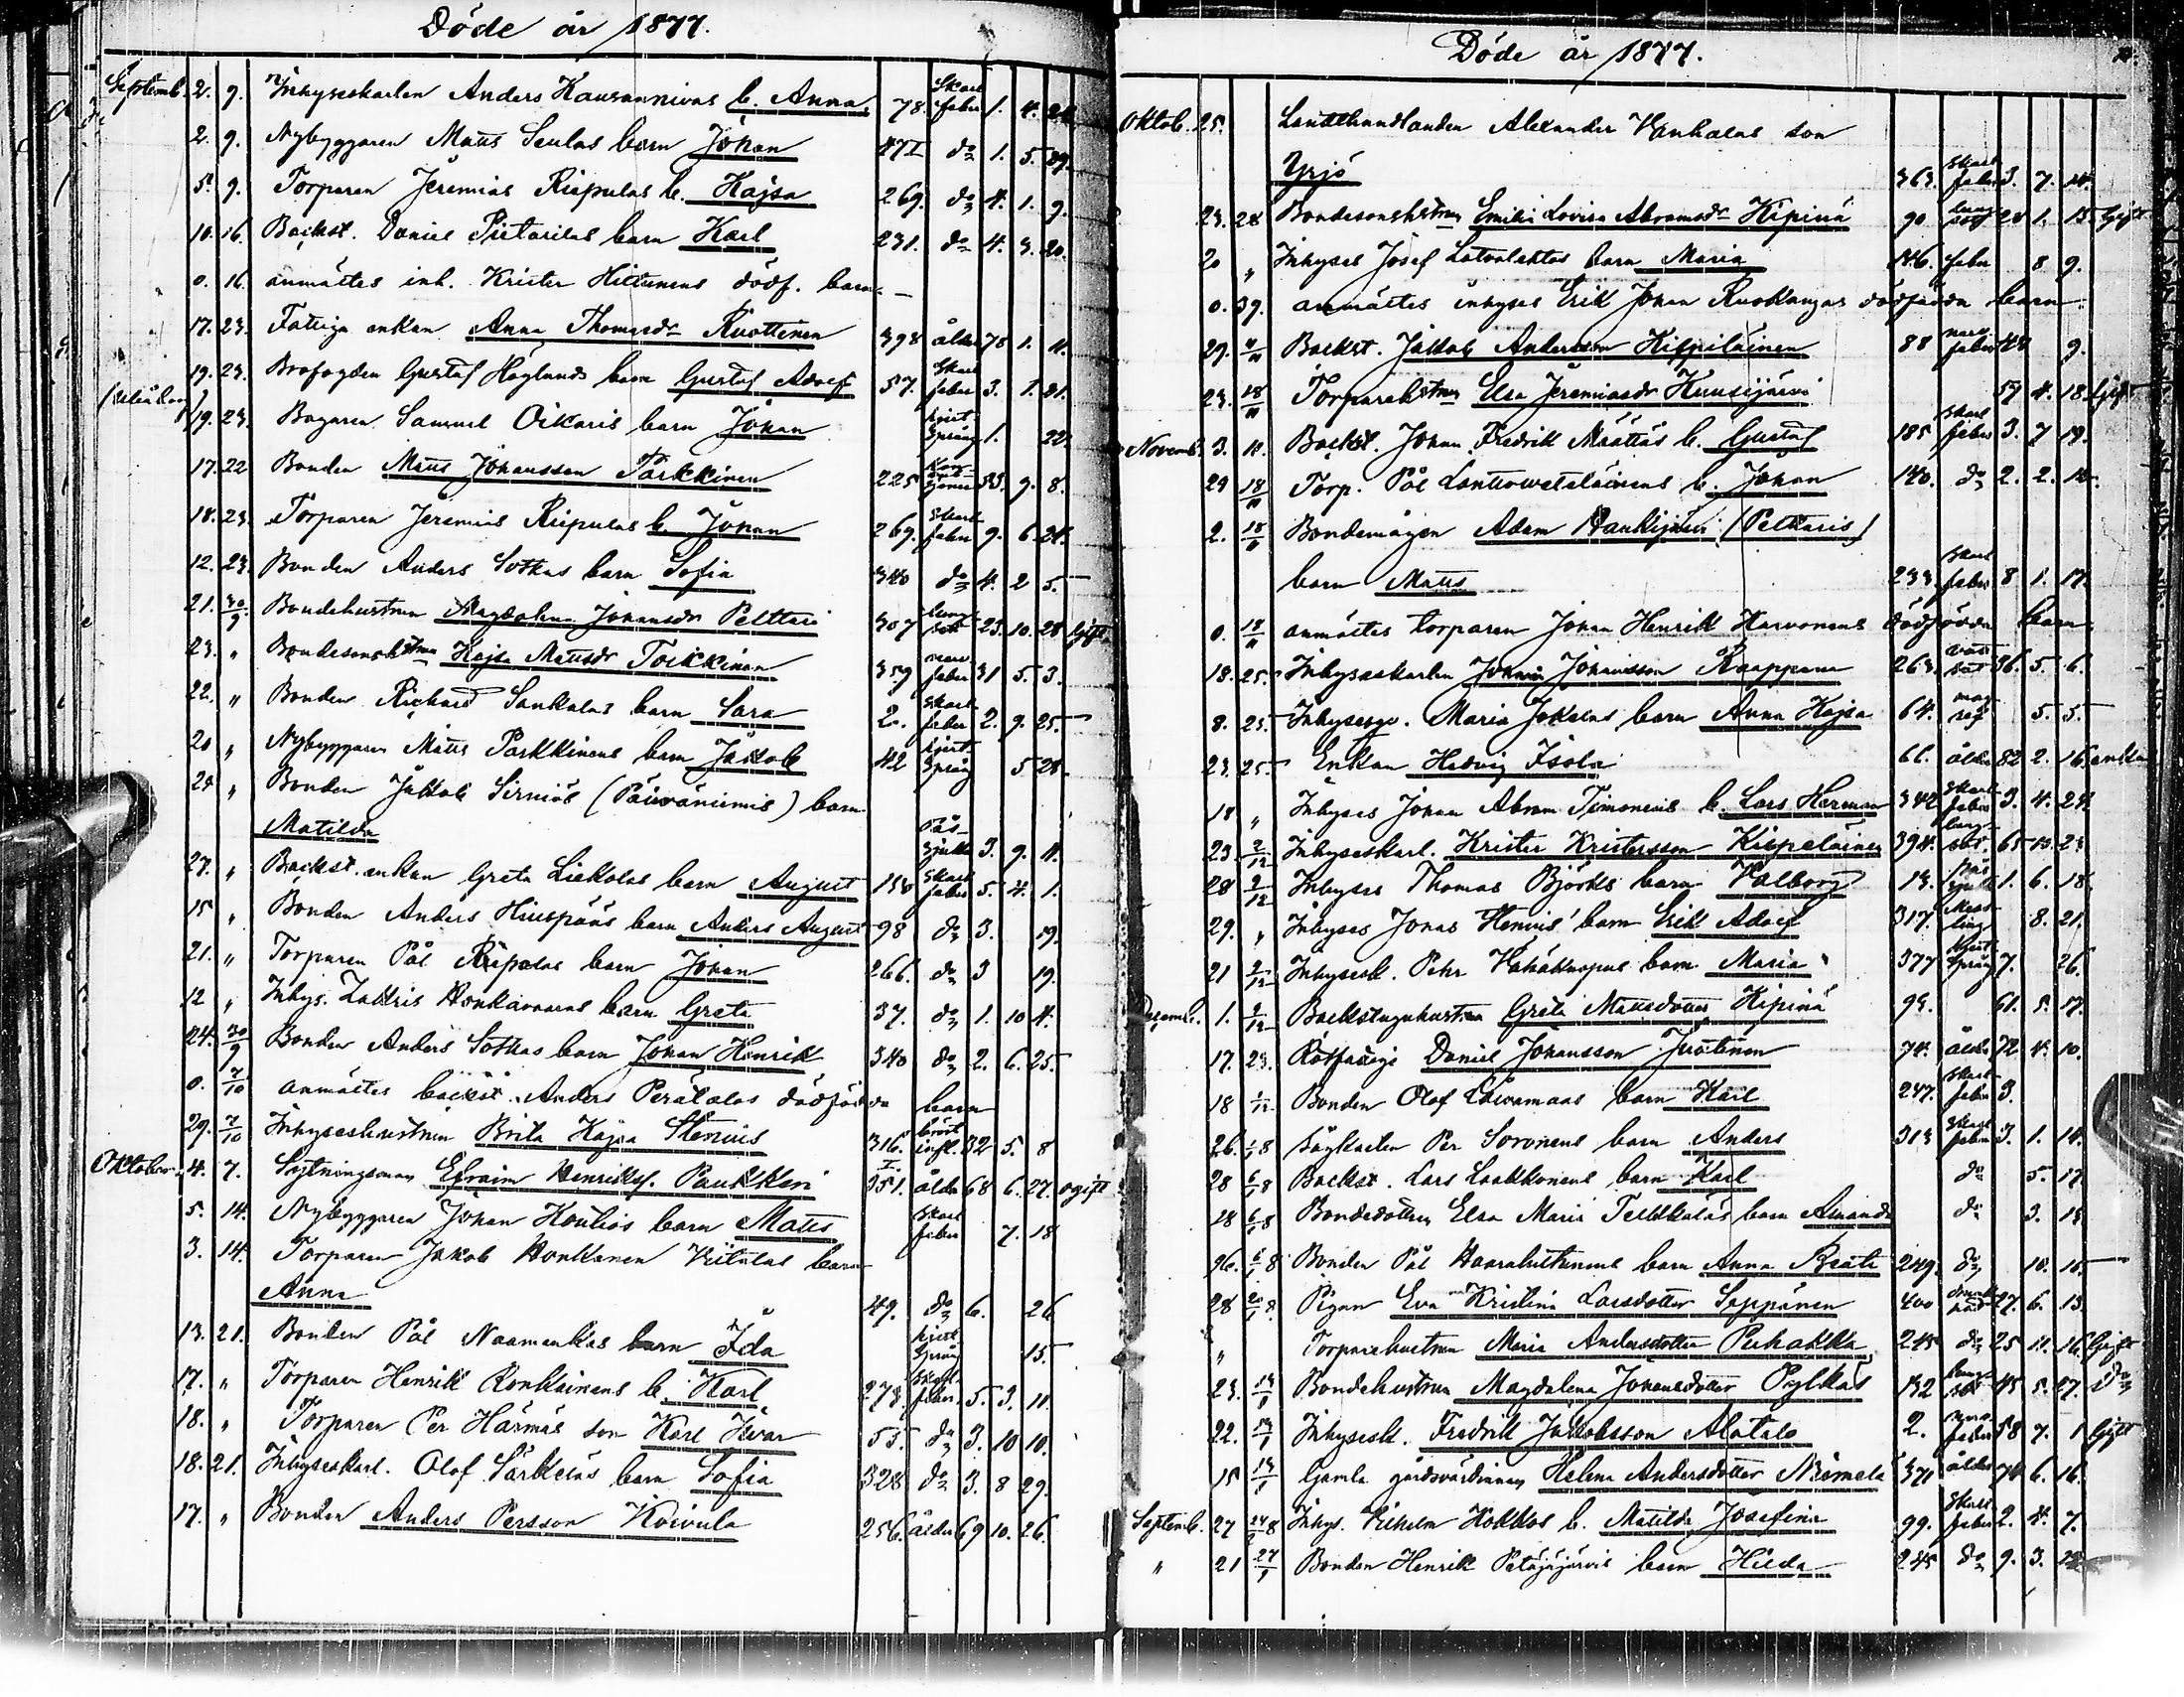 Döde år 1877.
Septemb. 2. 9. Inhyseskarlen Anders b. Anna 78. Skarl. feber 1. 4.
2. 9. Nybyggaren Matts Seulas barn Johan 471 do 1. 5. 29.
5. 9. Torparen Jeremias Riipulas b. Kajsa 269. do 4. 1. 9.
10. 16. Backst. Daniel Pietarilas barn Karl 231. do 4. 3. 20.
0. 16. anmältes inh. Krister Hiltunens dödf. barn
17. 23. Fattiga enkan Anna Thomasdr Ruottinen 398 ålder 78 1. 11.
19. 23. Brofogden Gustaf Höglunds barn Gustaf Adolf 57. Skarl. feber 3. 1. 21.
19. 23. Bagaren Samuel Oikaris barn Johan hjert språng 1. 22.
17. 22 Bonden Matts Johansson Parkkinen 225 33. 9. 8.
18. 23. Torparen Jeremias Riipulas b. Johan 269. Skarl. feber 9. 6. 21.
12. 23. Bonden Anders Sotkas barn Sofia 340 do 4. 2 5.
21. 30/9 Bondehustrun Magdalena Johansdr Pelttari 307 lungsot 23. 10. 28 Gift
23. " Bondesonshstrun Kajsa Mattsdr Toikkinen 359 nerv feber 31 5. 3.
22. " Bonden Richard Sankalas barn Sara 2. Skarl. feber 2. 9. 25.
20 " Nybyggaren Matts Parkkinens barn Jakob 42 hjert. språng 5 28.
24 " Bonden Jakob Sirniös (Päiväniemis) barn
Matilda Påssjuka 3. 9. 11.
27. " Backst. enkan Greta Liekolas barn August 150 Skarl feber 5. 4. 1.
15 " Bonden Anders barn Anders August 98 do 3. 19.
21. " Torparen Pål Riipulas barn Johan 266. do 3 19.
12 " Inhys. Zakris Honkavaaras barn Greta 37. do 1. 10 4.
24. 30/9 Bonden Anders Sotkas barn Johan Henrik 340 do 2. 6. 25.
0. 7/10 anmältes backst. Anders Perätalos dödfödda barn
29. 7/10 Inhyseshustrun Brita Kajsa Stenius 316. bröst infl. 32 5. 8
Oktober 4. 7. Sytningsman Efraim Henriksf. Paukkeri 351. ålder 68 6. 27. ogift
5. 14. Nybyggaren Johan Kouliös barn Matts Skarl feber 7. 18
3. 14. Torparen Jakob Honkanen Viitalas barn
Anna 49. do 6. 26
13. 21. Bonden Pål Naamankas barn Ida hjert. språng 15.
17. " Torparen Henrik Ronkainens b. Karl 278. Skarl. feber 5. 3. 11.
18. " Torparen Per Härmäs son Karl Ivar 55. do 3. 10 10.
18. 21. Inhyseskarl. Olof Särkeläs barn Sofia 328 do 3. 8 29.
17. " Bonden Anders Persson Koivula 256. ålder 69 10. 26.
Döde år 1877.
Oktob. 25. Landthandlanden Alexander Vanhalas son
Yrjö 363. Skarl. feber 3. 7. 14.
23. 28 Bondesonshstrun Emilia Lovisa Abramsdr Kipinä 90 lungsot 28 1. 15. Gift
20 " Inhyses Josef Latvalehtos barn Maria 146. feber 8 9.
0. 39. anmältes inhyses Erik Johan Ruokangas dödfödda barn
29. 4/11 Backst. Jakob Andersson Kilpiläinen 88 nerv. feber 9.
23. 18/11 Torparehstrun Elsa Jeremiasdr Kuusijärvi 59 4. 18. Gift
Novemb. 3. 11. Backst. Johan Fredrik Määttäs b. Gustaf 185 Skarl feber 3. 7 19.
29 18/11 Torp. Pål b. Johan 140. do 2. 2. 10.
2. 18/11 Bondemågen Adam Haukijärvi (Peltaris)
barn Matts 233. Skarl feber 8 1. 17.
0. 18/11 anmältes torparen Johan Henrik Karvonens dödfödda barn
18. 25. Inhyseskarlen Johan Johansson Kaappana 263. 36. 5. 6.
8. 25. Inhysespg. Maria Jokelas barn Anna Kajsa 64. mag ref 5. 5.
23. 25. Enkan Hedvig Isola 66. ålder 82 2. 16 enka
18. " Inhyses Johan Abram Timonens b. Lars Herman 342 Skarl. feber 3. 4. 24.
23. 2/12 Inhyseskarl. Krister Kristersson Kilpeläinen 394. lungsot. 65 10. 23
28 2/12 Inhyses Thomas Björks barn Valborg 13. Påssjuka 1. 6. 18.
29. " Inhyses Jonas Stenius' barn Erik Adolf 317. Messling 8. 21.
21 2/12 Inhysesk. Pehr barn Maria 377 hjert. språng 7. 26.
Decemb. 1. 2/12 Backstuguhustrun Greta Mattsdotter Kipinä 93. 61. 5. 17.
17. 23. Rotfattige Daniel Johansson Juotinen 74. ålder 72 4. 10.
18 Bonden Olof barn Karl 247. Skarl. feber 3.
26. Per Soronens barn Anders 313 Skarl feber 3. 1. 14.
28 6/1 8 Backst. Lars Laakkonens barn Karl do 5. 17.
18 6/1 8 Bondedottren Elsa Maria barn Amanda do 3. 13
26. 6/1 8 Bonden Pål barn Anna Beata 249. do 10. 10.
28 20/1 8. Pigan Eva Kristina Larsdotter Seppänen 400 27. 6. 13.
" Torparehustrun Maria Andersdotter Puhakka 245 do 25 11. 16. Gift
23. 13/1 Bondehustrun Magdalena Johansdotter Pylkäs 132 lungsot 45 5. 27. Do
22. 13/1 Inhysesk. Fredrik Jakobsson Alatalo 2. nerv. feber 58 7. 1 Gift
15 13/1 Gamla gårdsvärdinnan Helena Andersdotter Niemelä 371 ålder 70 6. 16.
Septemb. 27 24/2 8 Inhys. Vilhelm Kokkos b. Matilda Josefina 99. Skarl. feber 2. 4. 7.
" 21 27/1 Bonden Henrik Petäjäjärvis barn Hilda 245 do 9. 3.